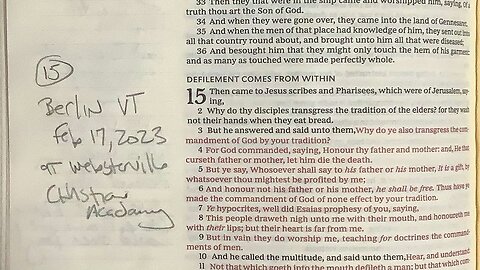 15
Berlin VT
Feb 17, 2023
at Websterville
Christian
Academy
33 Then they that were in the ship came and worshipped him, saying, Of a
truth thou art the Son of God.
34 And when they were gone over, they came into the land of Gennesaret.
35 And when the men of that place had knowledge of him, they sent out into
all that country round about, and brought unto him all that were diseased;
36 And besought him that they might only touch the hem of his garment:
and as many as touched were made perfectly whole.
DEFILEMENT COMES FROM WITHIN
15 Then came to Jesus scribes and Pharisees, which were of Jerusalem, say-
ing,
2 Why do thy disciples transgress the tradition of the elders? for they wash
not their hands when they eat bread.
3 But he answered and said unto them, Why do ye also transgress the com-
mandment of God by your tradition?
4 For God commanded, saying, Honour thy father and mother: and, He that
curseth father or mother, let him die the death.
5 But ye say, Whosoever shall say to his father or his mother, It is a gift, by
whatsoever thou mightest be profited by me;
6 And honour not his father or his mother, he shall be free. Thus have ye
made the commandment of God of none effect by your tradition.
7 Ye hypocrites, well did Esaias prophesy of you, saying,
8 This people draweth nigh unto me with their mouth, and honoureth me
with their lips; but their heart is far from me.
9 But in vain they do worship me, teaching for doctrines the command-
ments of men.
10 And he called the multitude, and said unto them, Hear, and understand:
11 Not that which goeth into the mouth defileth a man; but that which com-